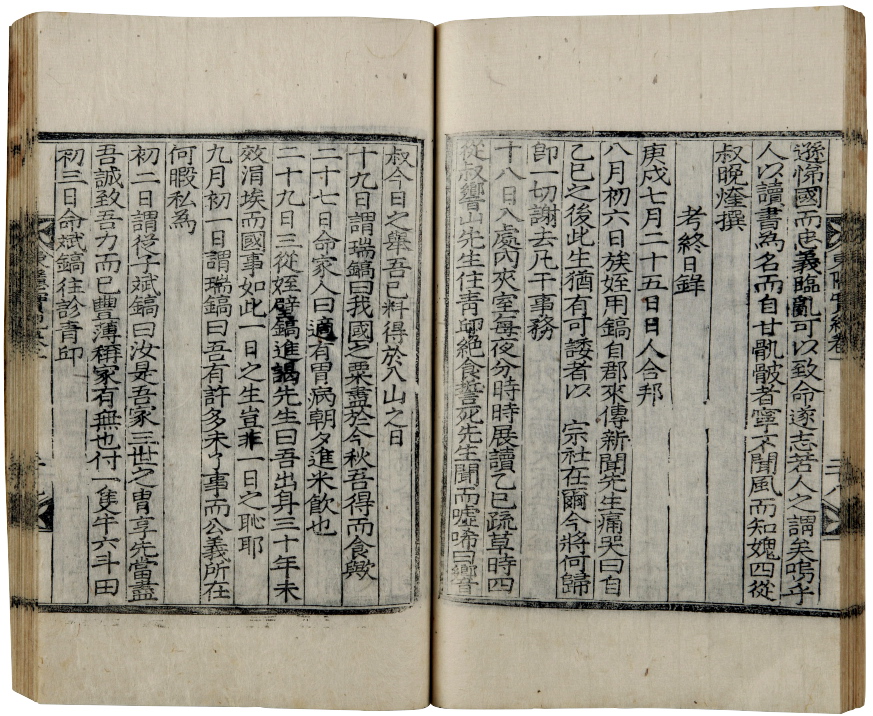 遜悌國而忠義臨亂可以致命遂志若人之謂矣嗚乎
人以讀書為名而自甘骫骳者寧不聞風而知媿四從
叔晩煃撰
考終日錄
庚戌七月二十五日日人合邦
八月初六日族姪用鎬自郡來傳新聞先生痛哭曰自
乙巳之後此生猶有可諉者以 宗社在爾今將何歸
卽一切謝去凡干事務
十八日入處內夾室每夜分時時展讀乙巳疏草時四
從叔響山先生住靑邱絶食誓死先生聞而噓唏曰響
叔今日之擧吾已料得於入山之日
十九日謂瑞鎬曰我國之粟盡於今秋吾得而食歟
二十七日命家人曰適有胃病朝夕進米飮也
二十九日三從姪壁鎬進謁先生曰吾出身三十年未
效涓埃而國事如此一日之生豈非一日之恥耶
九月初一日謂瑞鎬曰吾有許多未了事而公義所在
何暇私為
初二日謂從子斌鎬曰汝是吾家三世之胄享先當盡
吾誠致吾力而已豊薄稱家有無也付一隻牛六斗田
初三日命斌鎬往診靑邱